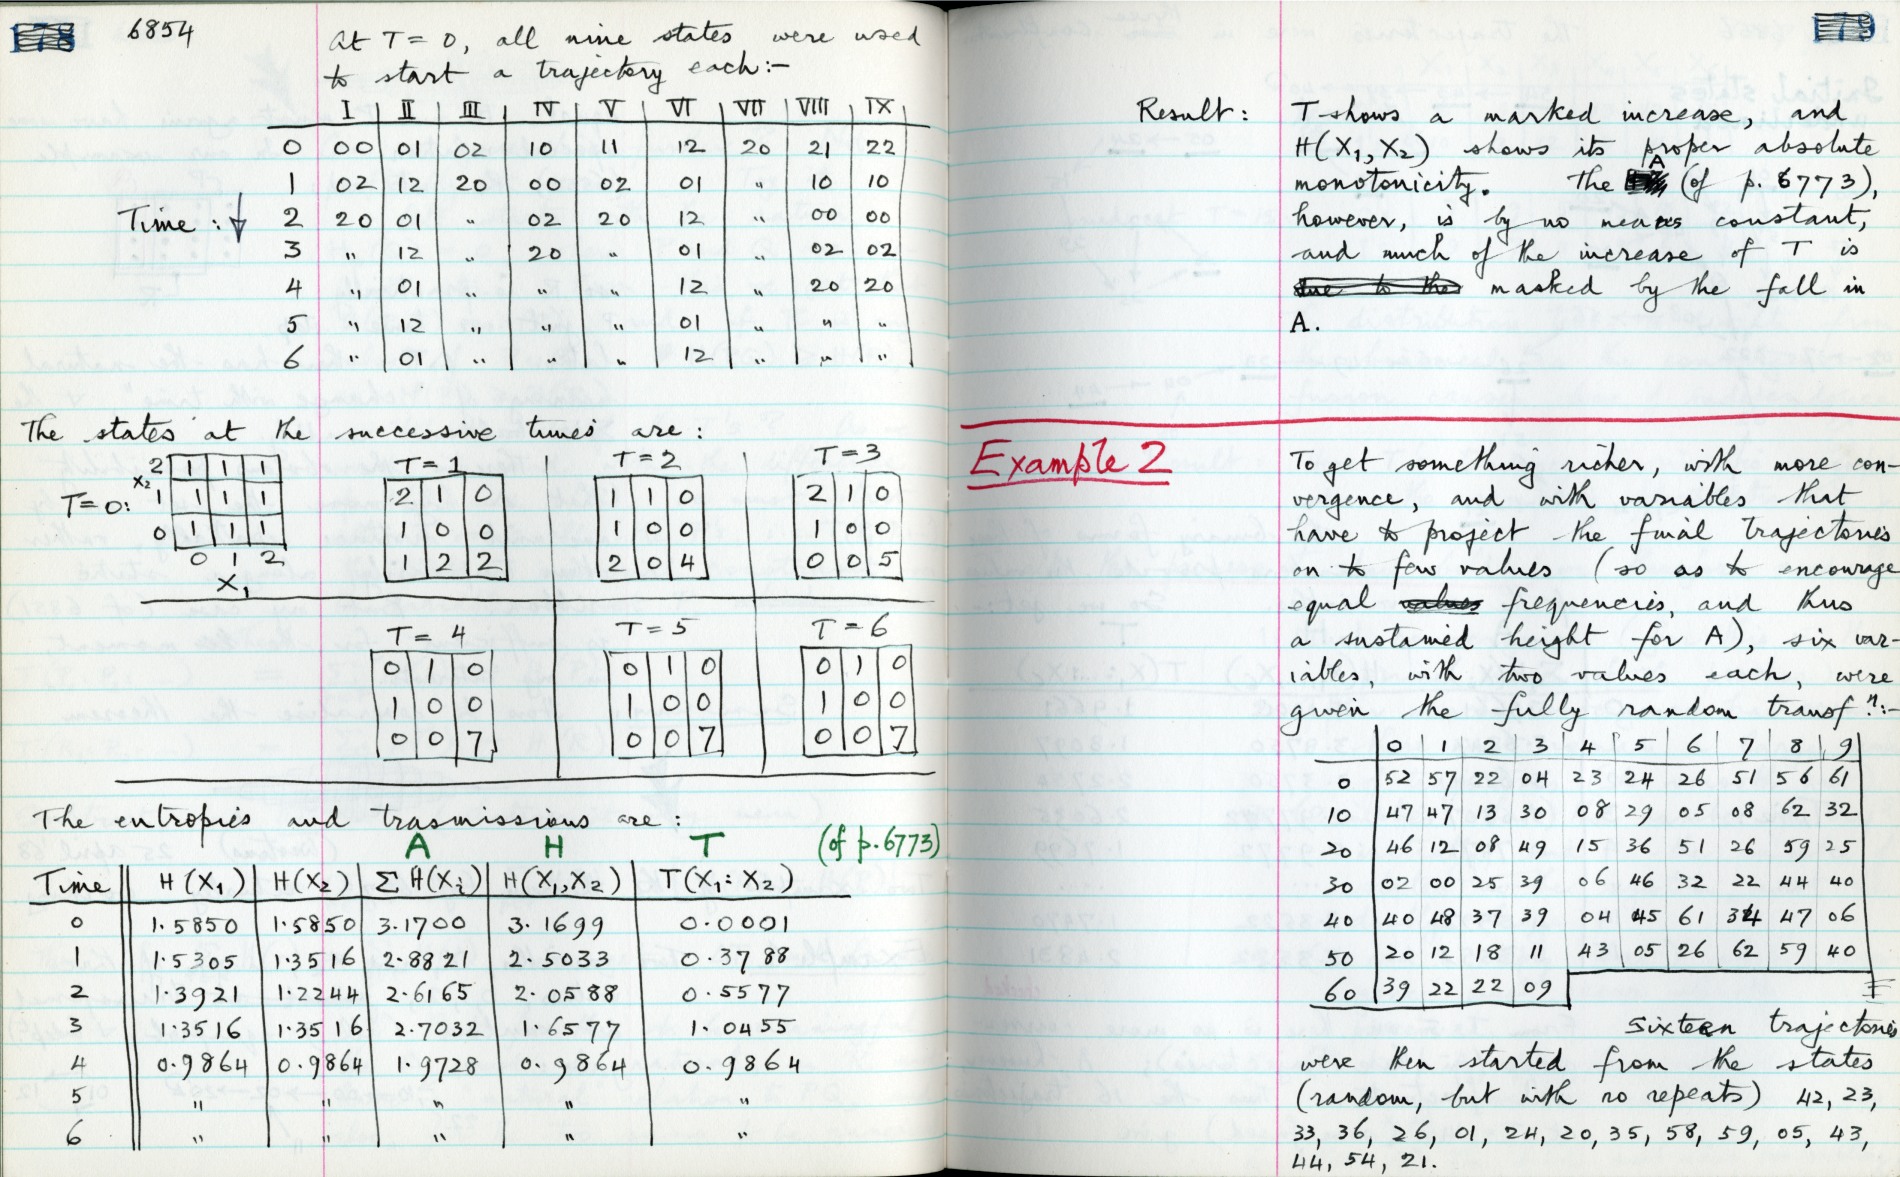 178 6854
At T = 0, all nine states were used
to start a trajectory each:-
I II III IV V VI VII VIII IX
0 00 01 02 10 11 12 20 21 22
1 02 12 20 00 02 01 " 10 10
Time: ↓ 2 20 01 " 02 20 12 " 00 00
3 " 12 " 20 " 01 " 02 02
4 " 01 " " " 12 " 20 20
5 " 12 " " " 01 " " "
6 " 01 " " " 12 " " "
The states at the successive times are:
T=0: T=1 T=2 T=3
X2 2 1 1 1
1 1 1 1
0 1 1 1
0 1 2
X1
2 1 0
1 0 0
1 2 2
1 1 0
1 0 0
2 0 4
2 1 0
1 0 0
0 0 5
T=4 T=5 T=6
0 1 0
1 0 0
0 0 7
0 1 0
1 0 0
0 0 7
0 1 0
1 0 0
0 0 7
The entropies and trasmissions are:
A H T (of p.6773)
Time H(X1) H(X2) Σ H(Xi) H(X1,X2) T(X1:X2)
0 1.5850 1.5850 3.1700 3.1699 0.0001
1 1.5305 1.3516 2.8821 2.5033 0.3788
2 1.3921 1.2244 2.6165 2.0588 0.5577
3 1.3516 1.3516 2.7032 1.6577 1.0455
4 0.9864 0.9864 1.9728 0.9864 0.9864
5 " " " " "
6 " " " " "
179
Result: T shows a marked increase, and
H(X1,X2) shows its proper absolute
monotonicity. The A (of p. 6773),
however, is by no means constant,
and much of the increase of T is
due to the masked by the fall in
A.
Example 2
To get something richer, with more con-
vergence, and with variables that
have to project the final trajectories
on to few values (so as to encourage
equal values frequencies, and thus
a sustained height for A), six var-
iables, with two values each, were
given the fully random transfn:-
0 1 2 3 4 5 6 7 8 9
0 52 57 22 04 23 24 26 51 56 61
10 47 47 13 30 08 29 05 08 62 32
20 46 12 08 49 15 36 51 26 59 25
30 02 00 25 39 06 46 32 22 44 40
40 40 48 37 39 04 45 61 34 47 06
50 20 12 18 11 43 05 26 62 59 40
60 39 22 22 09
Sixteen trajectories
were then started from the states
(random, but with no repeats) 42, 23,
33, 36, 26, 01, 24, 20, 35, 58, 59, 05, 43,
44, 54, 21.